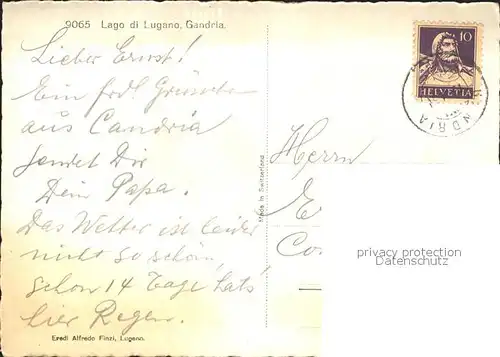 9065 Lago di Lugano, Gandria.
Lieber Ernst!
Ein frdl. Grüssen
aus Candria
sendet Dir
Dein Papa.
Das Wetter ist leider
nicht so schön,
schon 14 Tage hat's
hier Regen.
Eredi Alfredo Finzi, Lugano.
Made in Switzerland
10
HELVETIA
NDRIA
Herrn
E
Co
privacy protection
Datenschutz